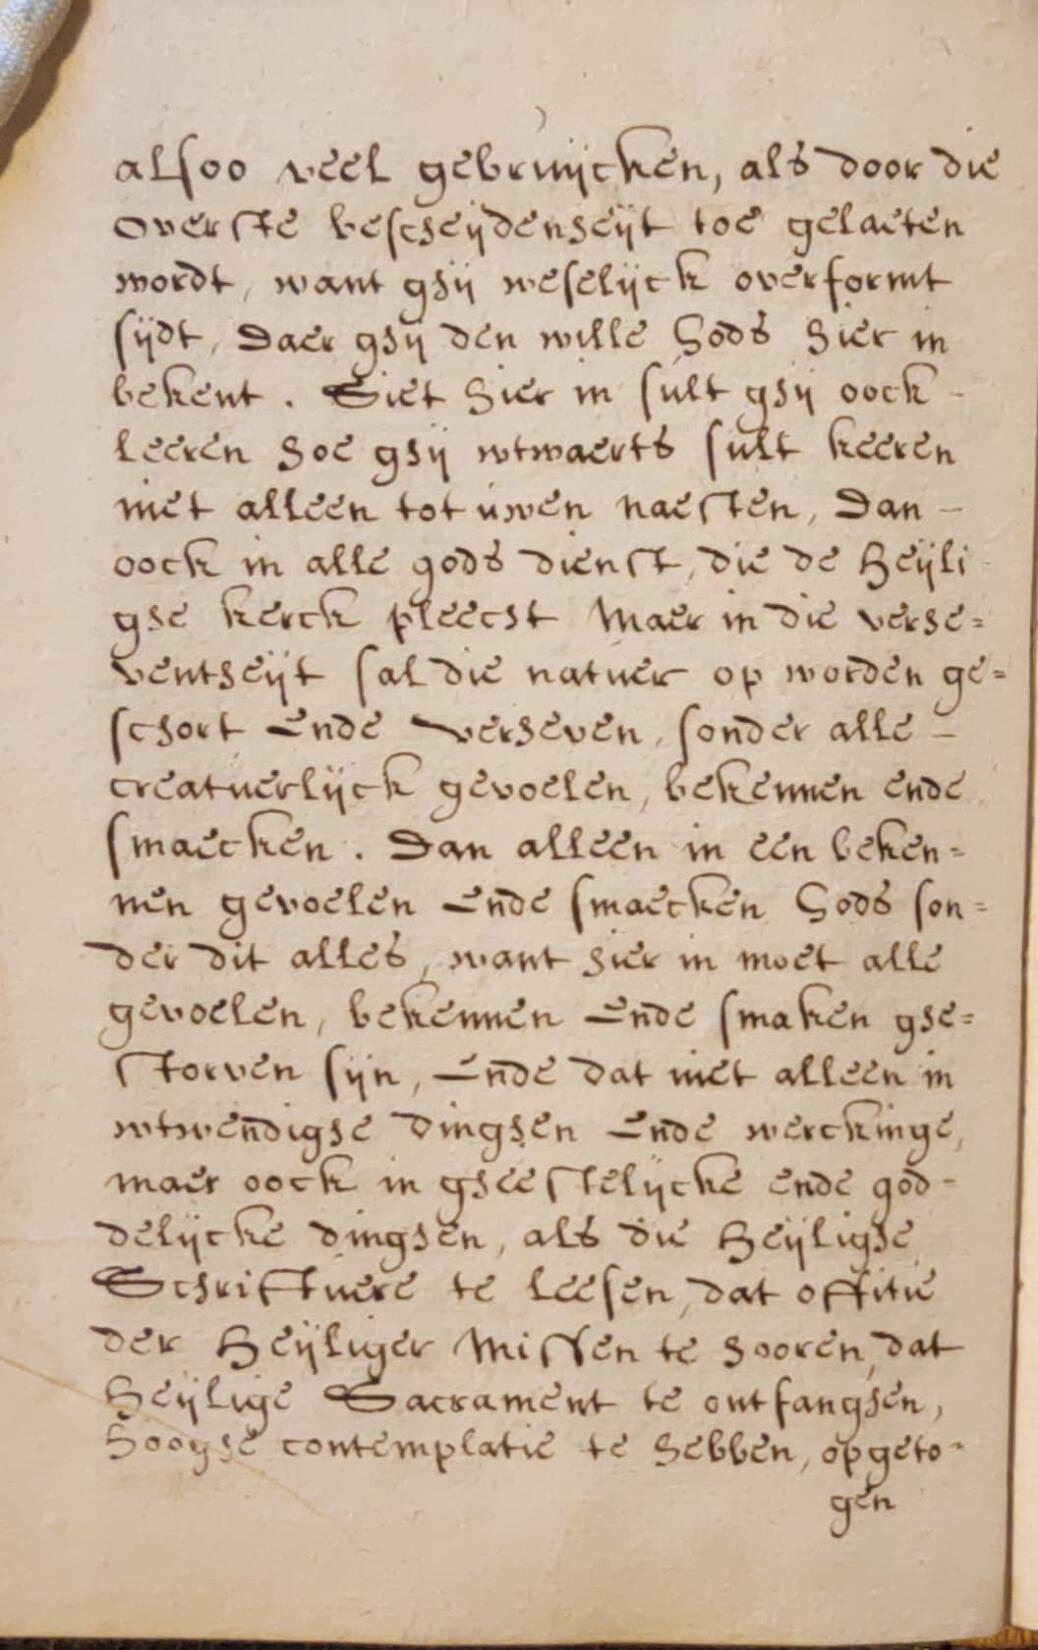 alsoo veel gebruijcken, als door die
overste bescheijdenheijt toe gelaeten
wordt, want ghij weselijck overformt
sijdt, Daer ghij den wille Gods hier in
bekent. Siet hier in sult ghij oock -
leeren hoe ghij wtwaerts sult keeren
niet alleen tot uwen naesten, Dan -
oock in alle gods dienst, die de Heijli-
ghe kerck pleecht Maer in die verhe=
ventheijt sal die natuer op worden ge=
schort Ende verheven, sonder alle -
creatuerlijck gevoelen, bekennen ende
smaecken. Dan alleen in een beken=
nen gevoelen Ende smaecken Gods son=
der dit alles, want hier in moet alle
gevoelen, bekennen Ende smaken ghe=
storven sijn, Ende dat niet alleen in
wtwendighe dinghen Ende werckinge,
maer oock in gheestelijcke ende god=
delijcke dinghen, als die Heijlighe
Schriftuere te leesen, dat offitie
der Heijliger Missen te hooren, dat
Heijlige Sacrament te ontfanghen,
hooghe contemplatie te hebben, opgeto=
gen